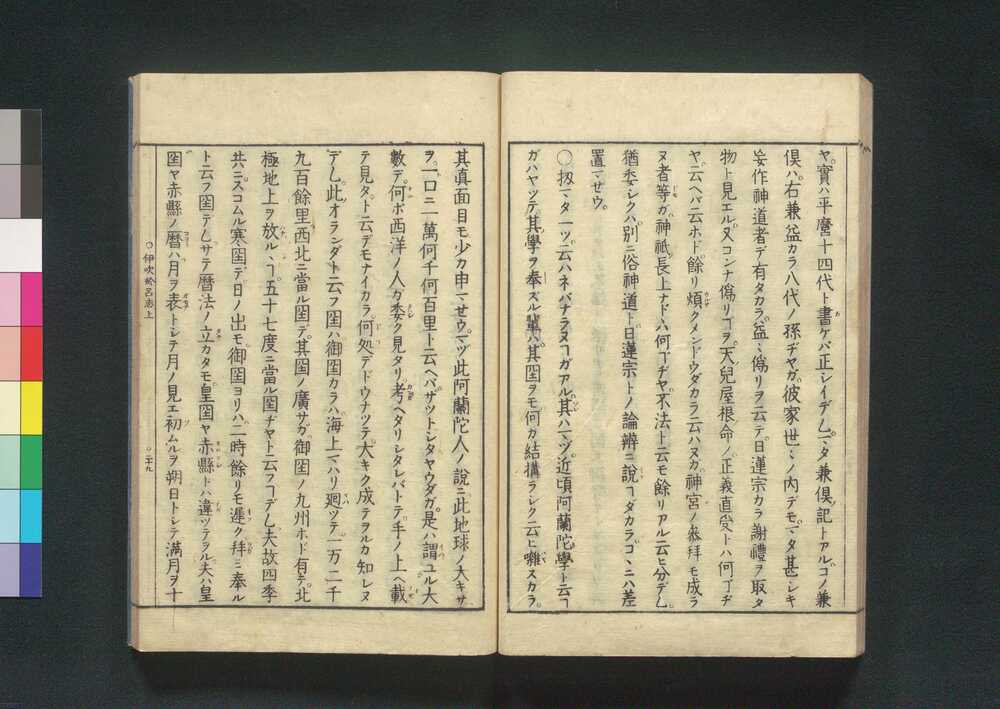 ヤ。實ハ平麿十四代ト書ケバ正シイデム。マタ兼倶記トアル。コノ兼
倶ハ。右兼益カラ八代ノ孫ヂヤガ。彼家世々ノ内デモ。マタ甚シキ
妄作神道者デ有タカラ。益々僞リヲ云テ。日蓮宗カラ謝禮ヲ取タ
物ト見エル。又コンナ僞リヿヲ。天兒屋根命ノ正義直受トハ何ヿヂ
ヤ。云ヘバ云ホド餘リ煩クメンドウダカラ云ハヌガ。神宮ノ參拜モ成ラ
ヌ者等ガ。神祇長上ナドハ何ヿヂヤ。不法ト云モ餘リアル云ヒ分デム。
猶委シクハ。別ニ俗神道ト日蓮宗トノ論辨ニ說ヿダカラ。コヽニハ差
置マセウ。
○扨マタ一ツ云ハネバナラヌヿガアル。其ハマヅ。近頃阿蘭陀學ト云ヿ
ガハヤツテ。其學ヲ奉ズル輩ハ。其囶ヲモ何カ結構ラシク云ヒ囃スカラ。
其眞面目モ少カ申マセウ。マヅ此阿蘭陀人ノ說ニ此地球ノ大キサ
ヲ。一口ニ一萬何千何百里ト云ヘバ。ザツトシタヤウダガ。是ハ謂ユル大
數デ。何ボ西洋ノ人ガ委ク見タリ考ヘタリシタレバトテ。手ノ上ヘ載
テ見タト云デモナイカラ。何処デドウナツテ。大キク成テヲルカ知レヌ
デム。此オランダト云フ囶ハ御囶カラハ海上マハリ廻ツテ。一万二千
九百餘里西北ニ當ル囶デ。其囶ノ廣サガ。御囶ノ九州ホド有テ。北
極地上ヲ放ルヽヿ。五十七度ニ當ル囶ヂヤト云フヿデム。夫故四季
共ニスコムル寒囶デ。日ノ出モ御囶ヨリハ二時餘リモ遲ク拜ミ奉ル
ト云フ囶デム。サテ曆法ノ立カタモ。皇囶ヤ赤縣トハ違ツテヲル。夫ハ皇
囶ヤ赤縣ノ曆ハ月ヲ表トシテ。月ノ見エ初ムルヲ朔日トシテ。滿月ヲ十
○伊吹於呂志上
○二十九